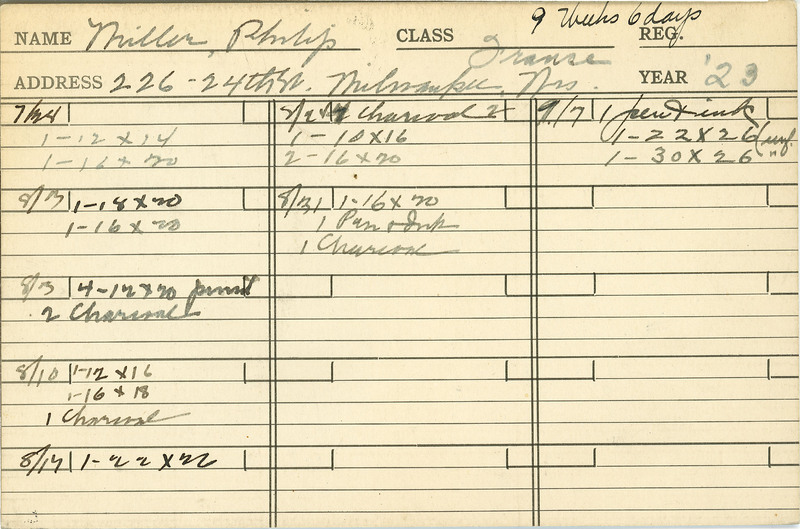 9 Weeks 6 days
NAME Miller, Philip CLASS Transe REG.
ADDRESS 226-24th St. Milwaukee, Wis. YEAR '23
7/24
1-12 x 14
1-16 x 20
1-18 x 20
1-16 x 20
8/3 4-12 x 20 pencil
2 Charcoal
8/10 1-12 x 16
1-16 x 18
1 Charcoal
8/17 1-22 x 22
Charcoal 2
1-10 x 16
2-16 x 20
8/31 1-16 x 20
1 Pen & Ink
1 Charcoal
9/7 1 pen & ink
1-22 x 26
1-30 x 26